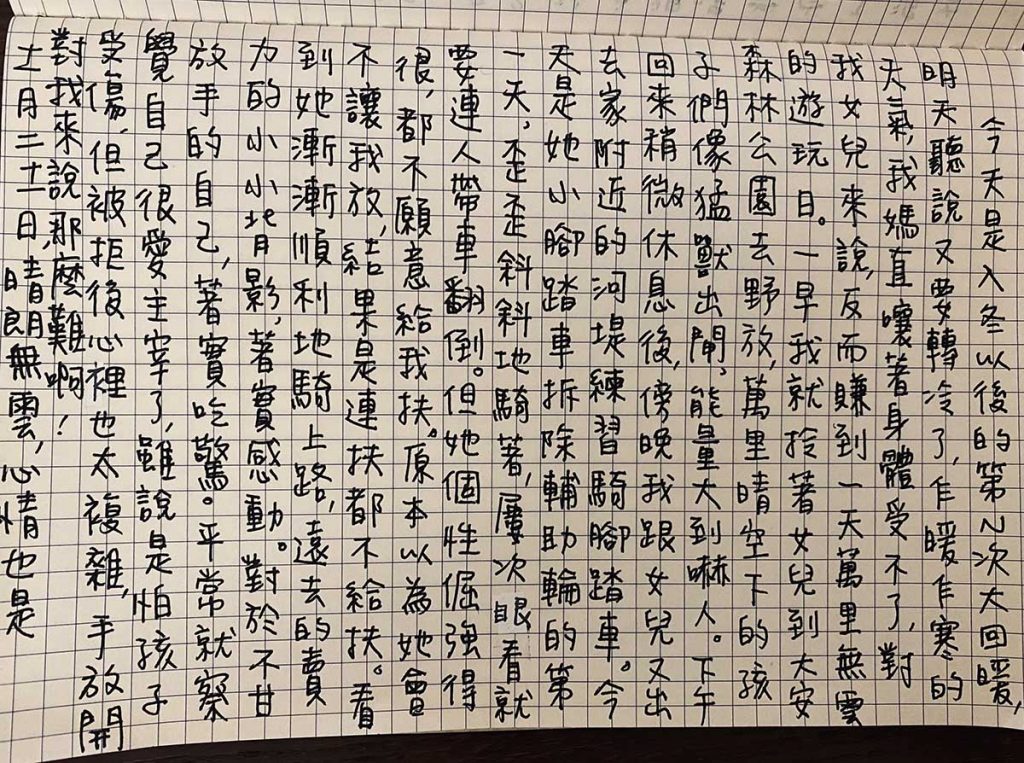 今天是入冬以後的第N次大回暖,
明天聽說又要轉冷了,乍暖乍寒的
天氣,我媽直嚷著身體受不了,對
我女兒來說,反而賺到一天萬里無雲
的遊玩日。一早我就拎著女兒到大安
森林公園去野放,萬里晴空下的孩
子們像猛獸出閘,能量大到嚇人。下午
回來稍微休息後,傍晚我跟女兒又出
去家附近的河堤練習騎腳踏車。今
天是她小腳踏車拆除輔助輪的第
一天,歪歪斜斜地騎著,屢次眼看就
要連人帶車翻倒。但她個性倔強得
很,都不願意給我扶。原本以為她會
不讓我放,結果是連扶都不給扶。看
到她漸漸順利地騎上路,遠去的賣
力的小小背影,著實感動。對於不甘
放手的自己,著實吃驚。平常就察
覺自己很愛主宰了,雖說是怕孩子
受傷,但被拒後心裡也太複雜,手放開
對我來說那麼難啊!
十一月二十一日晴朗無雲,心情也是